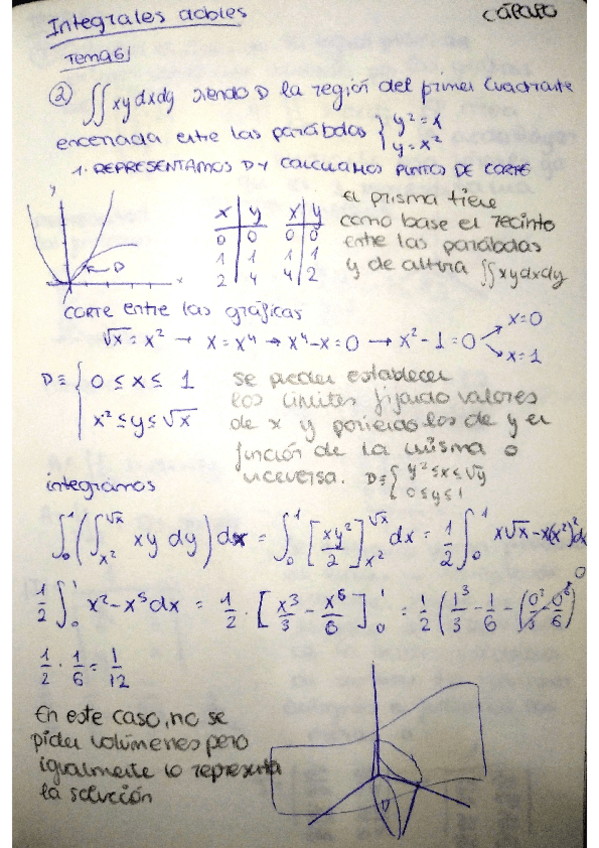 Integrales dobles
CÁLCULO
Tema 6
② ∬ xy dx dy siendo D la región del primer cuadrante
encerrada entre las parábolas { y² = x
y = x²
1. REPRESENTAMOS D Y CALCULAMOS PUNTOS DE CORTE
y
x
D
x | y
0 | 0
1 | 1
2 | 4
x | y
0 | 0
1 | 1
4 | 2
el prisma tiene
como base el recinto
entre las parábolas
y de altura ∬ xy dx dy
corte entre las gráficas
√x = x² → x = x⁴ → x⁴ - x = 0 → x² - 1 = 0
x = 0
x = 1
D ≡ { 0 ≤ x ≤ 1
x² ≤ y ≤ √x
se pueden establecer
los límites fijando valores
de x y poniendo los de y en
función de la misma o
viceversa. D ≡ { y² ≤ x ≤ √y
0 ≤ y ≤ 1
integramos
∫₀¹ (∫_{x²}^{√x} xy dy) dx = ∫₀¹ [xy²/2]_{x²}^{√x} dx = 1/2 ∫₀¹ x√x - x(x²)² dx
1/2 ∫₀¹ x² - x⁵ dx = 1/2 · [x³/3 - x⁶/6]₀¹ = 1/2 (1³/3 - 1/6 - (0³/3 - 0⁶/6))
0
1/2 · 1/6 = 1/12
En este caso, no se
piden volúmenes pero
igualmente lo representa
la solución
D